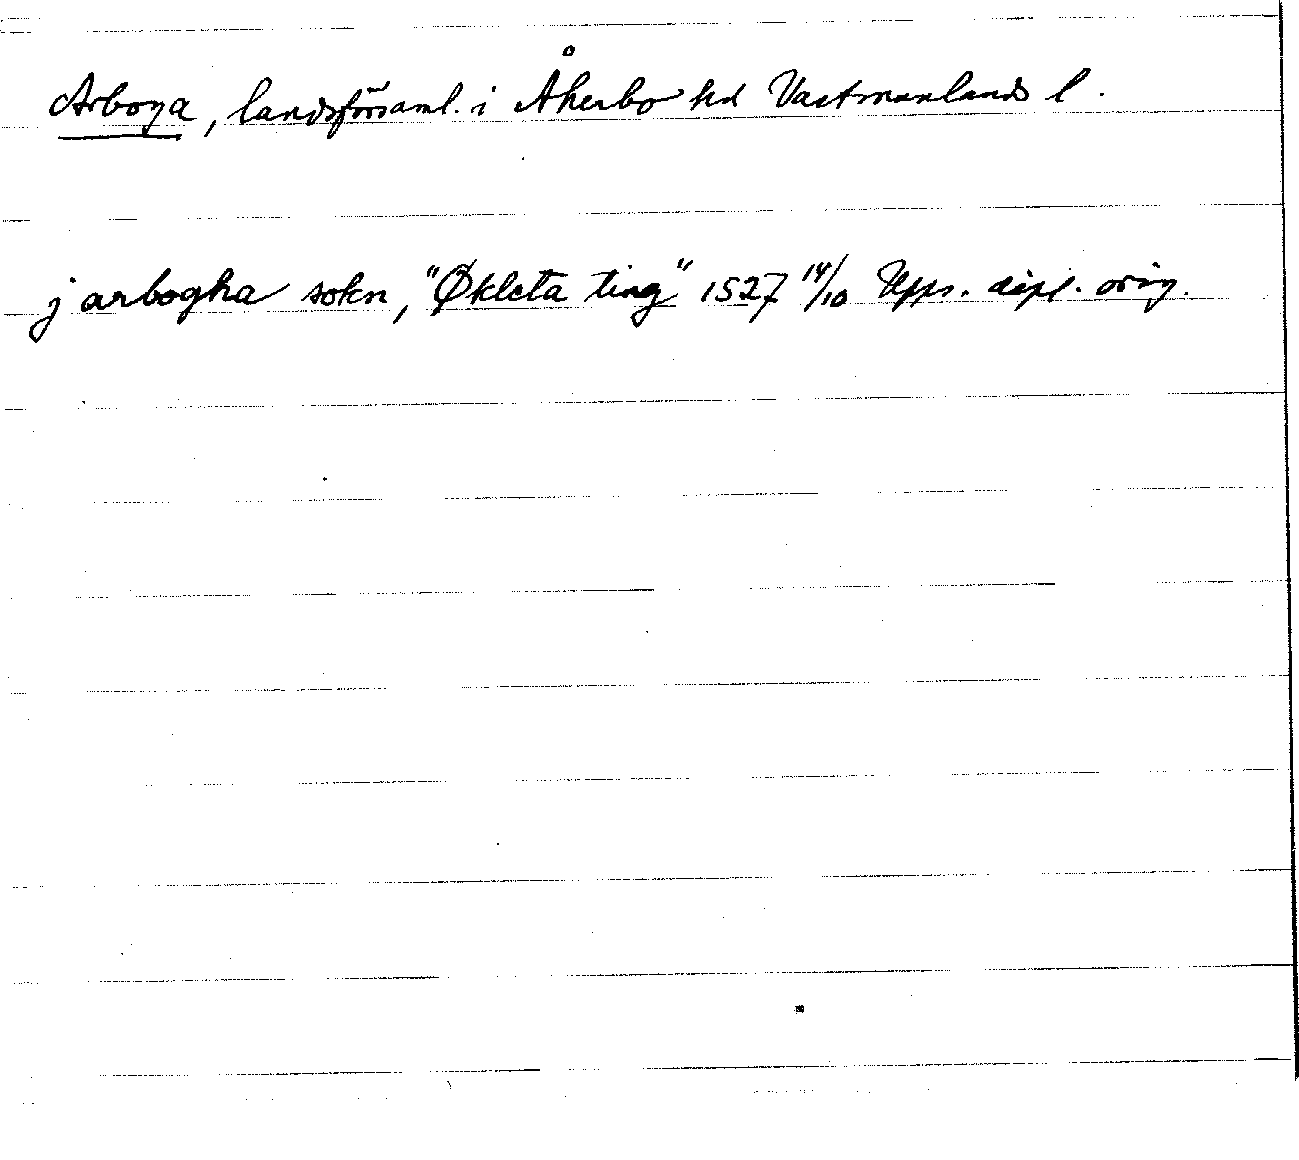 Arboga, landsförsaml. i Åkerbo hd Västmanlands l.
j arbogha sokn, "Økleta ting" 1527 14/10 Upps. dipl. orig.